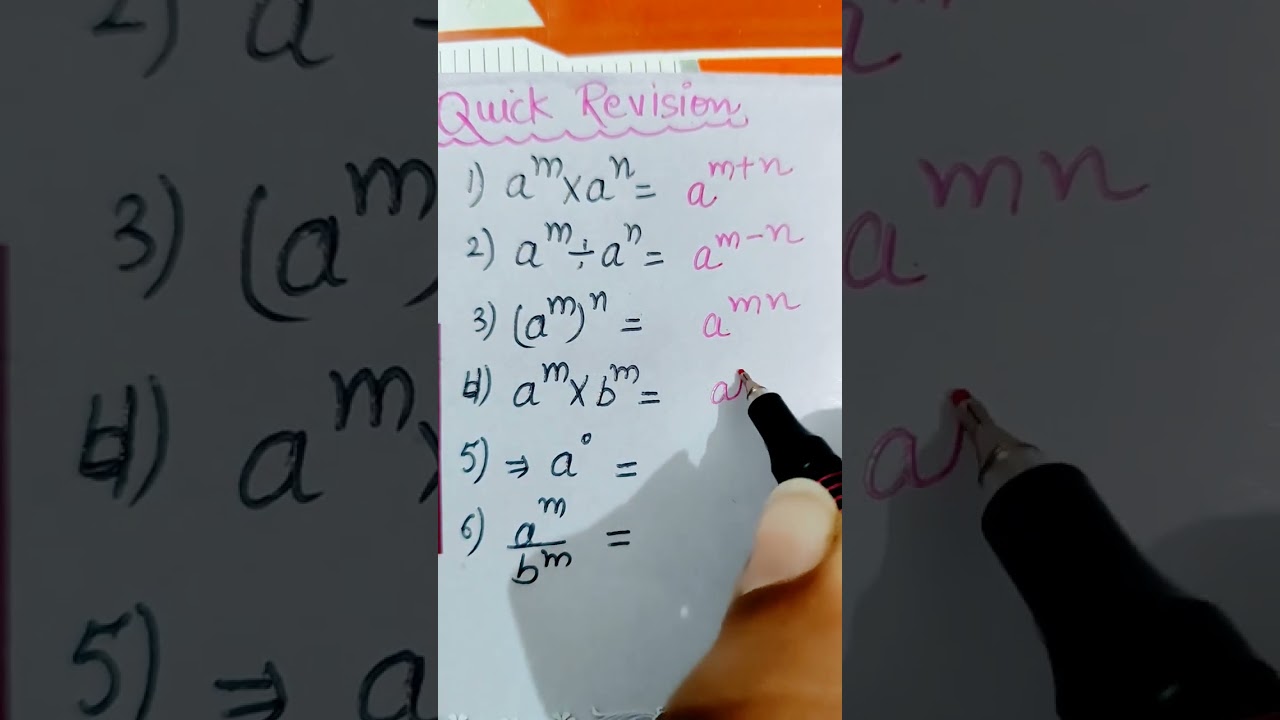 Quick Revision
1) a^m × a^n = a^{m+n}
2) a^m ÷ a^n = a^{m-n}
3) (a^m)^n = a^{mn}
4) a^m × b^m = a
5) ⇒ a° =
6) a^m / b^m =